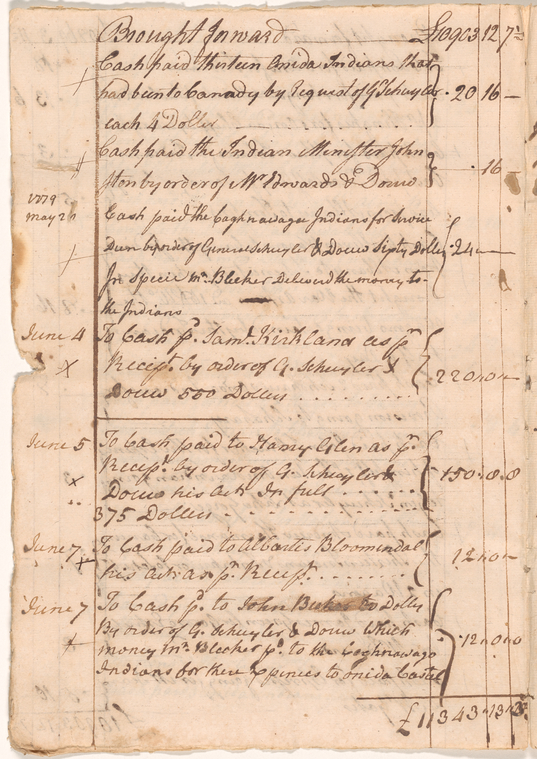 Brought forward £10903 12 7½
Cash paid thirteen Onida Indians that
had been to Canady by Request of Gl Schuyler 20 16 —
each 4 Doller
Cash paid the Indian Minister John
ston by order of Mr Edwards & Douw 16 —
1779
May 21
Cash paid the Caghnawagee Indians for Service
Dun by order of General Schuyler & Douw Sixty Dollers 24 —
In Specie Mr. Bleeker Delivered the money to
the Indians
June 4 To Cash pd. Saml. Kirkland as pr.
Receipt. by order of G. Schuyler & 220 " 0 " —
Douw 550 Dollers
June 5 To Cash paid to Henry Glen as pr.
Receipt. by order of G. Schuyler &
Douw his Act. In full 150 " 8 " 8
375 Dollers
June 7 To Cash paid to Albartis Bloomendal 12 " 0 " —
his Act. as pr. Receipt
June 7 To Cash pd. to John to Dollers
By order of G. Schuyler & Douw Which
money Mr. Bleeker pd. to the Coghnawago 12 " 0 " 0
Indians for there Expinces to onida Castel
£ 11343 " 13 "